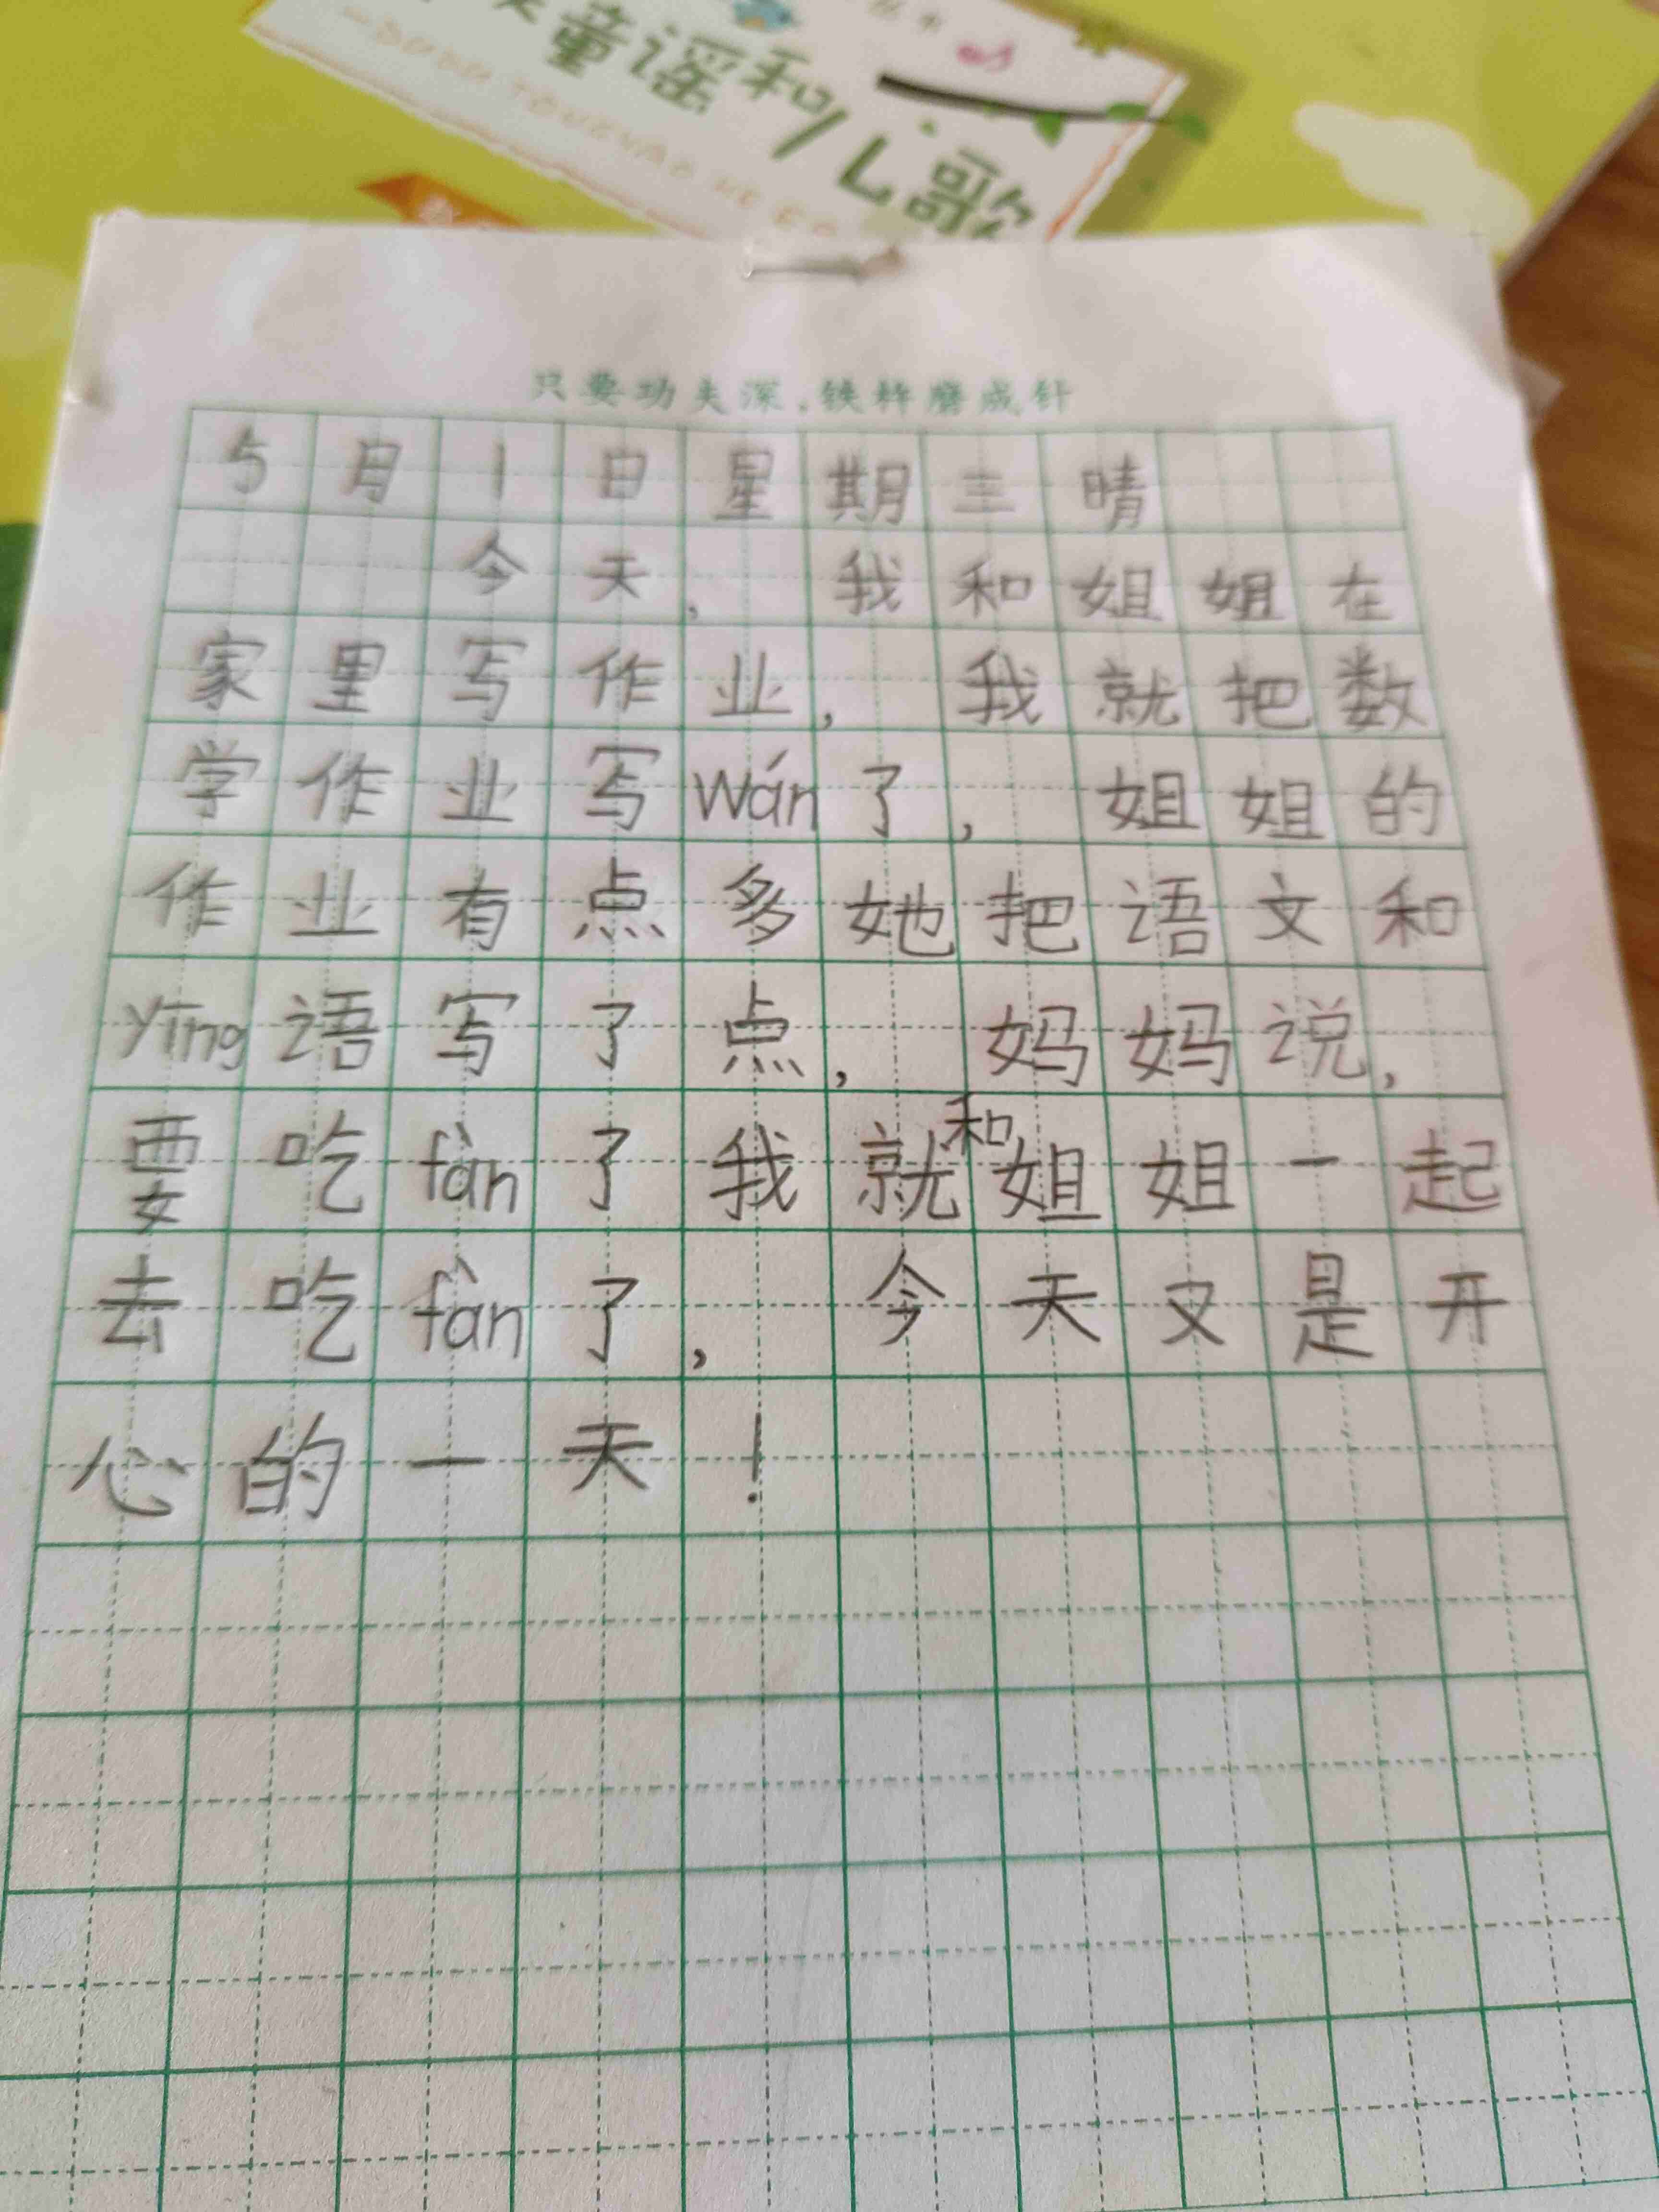 童谣和儿歌
只要功夫深，铁杵磨成针
5月1日星期三晴
今天，我和姐姐在
家里写作业，我就把数
学作业写wán了，姐姐的
作业有点多她把语文和
yīng语写了点，妈妈说，
要吃fàn了我就和姐姐一起
去吃fàn了，今天又是开
心的一天！